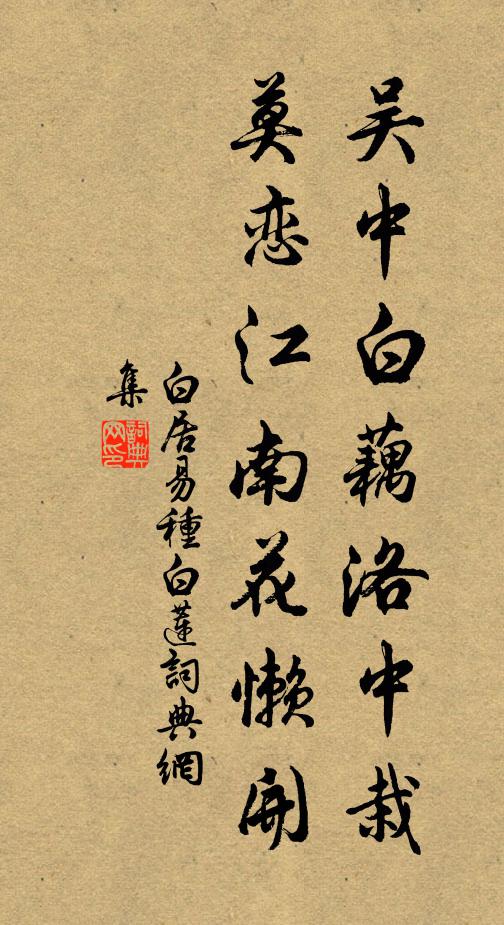 吴中白藕洛中栽
莫恋江南花懒开
白居易種白蓮詞典網
集
詞典
网印